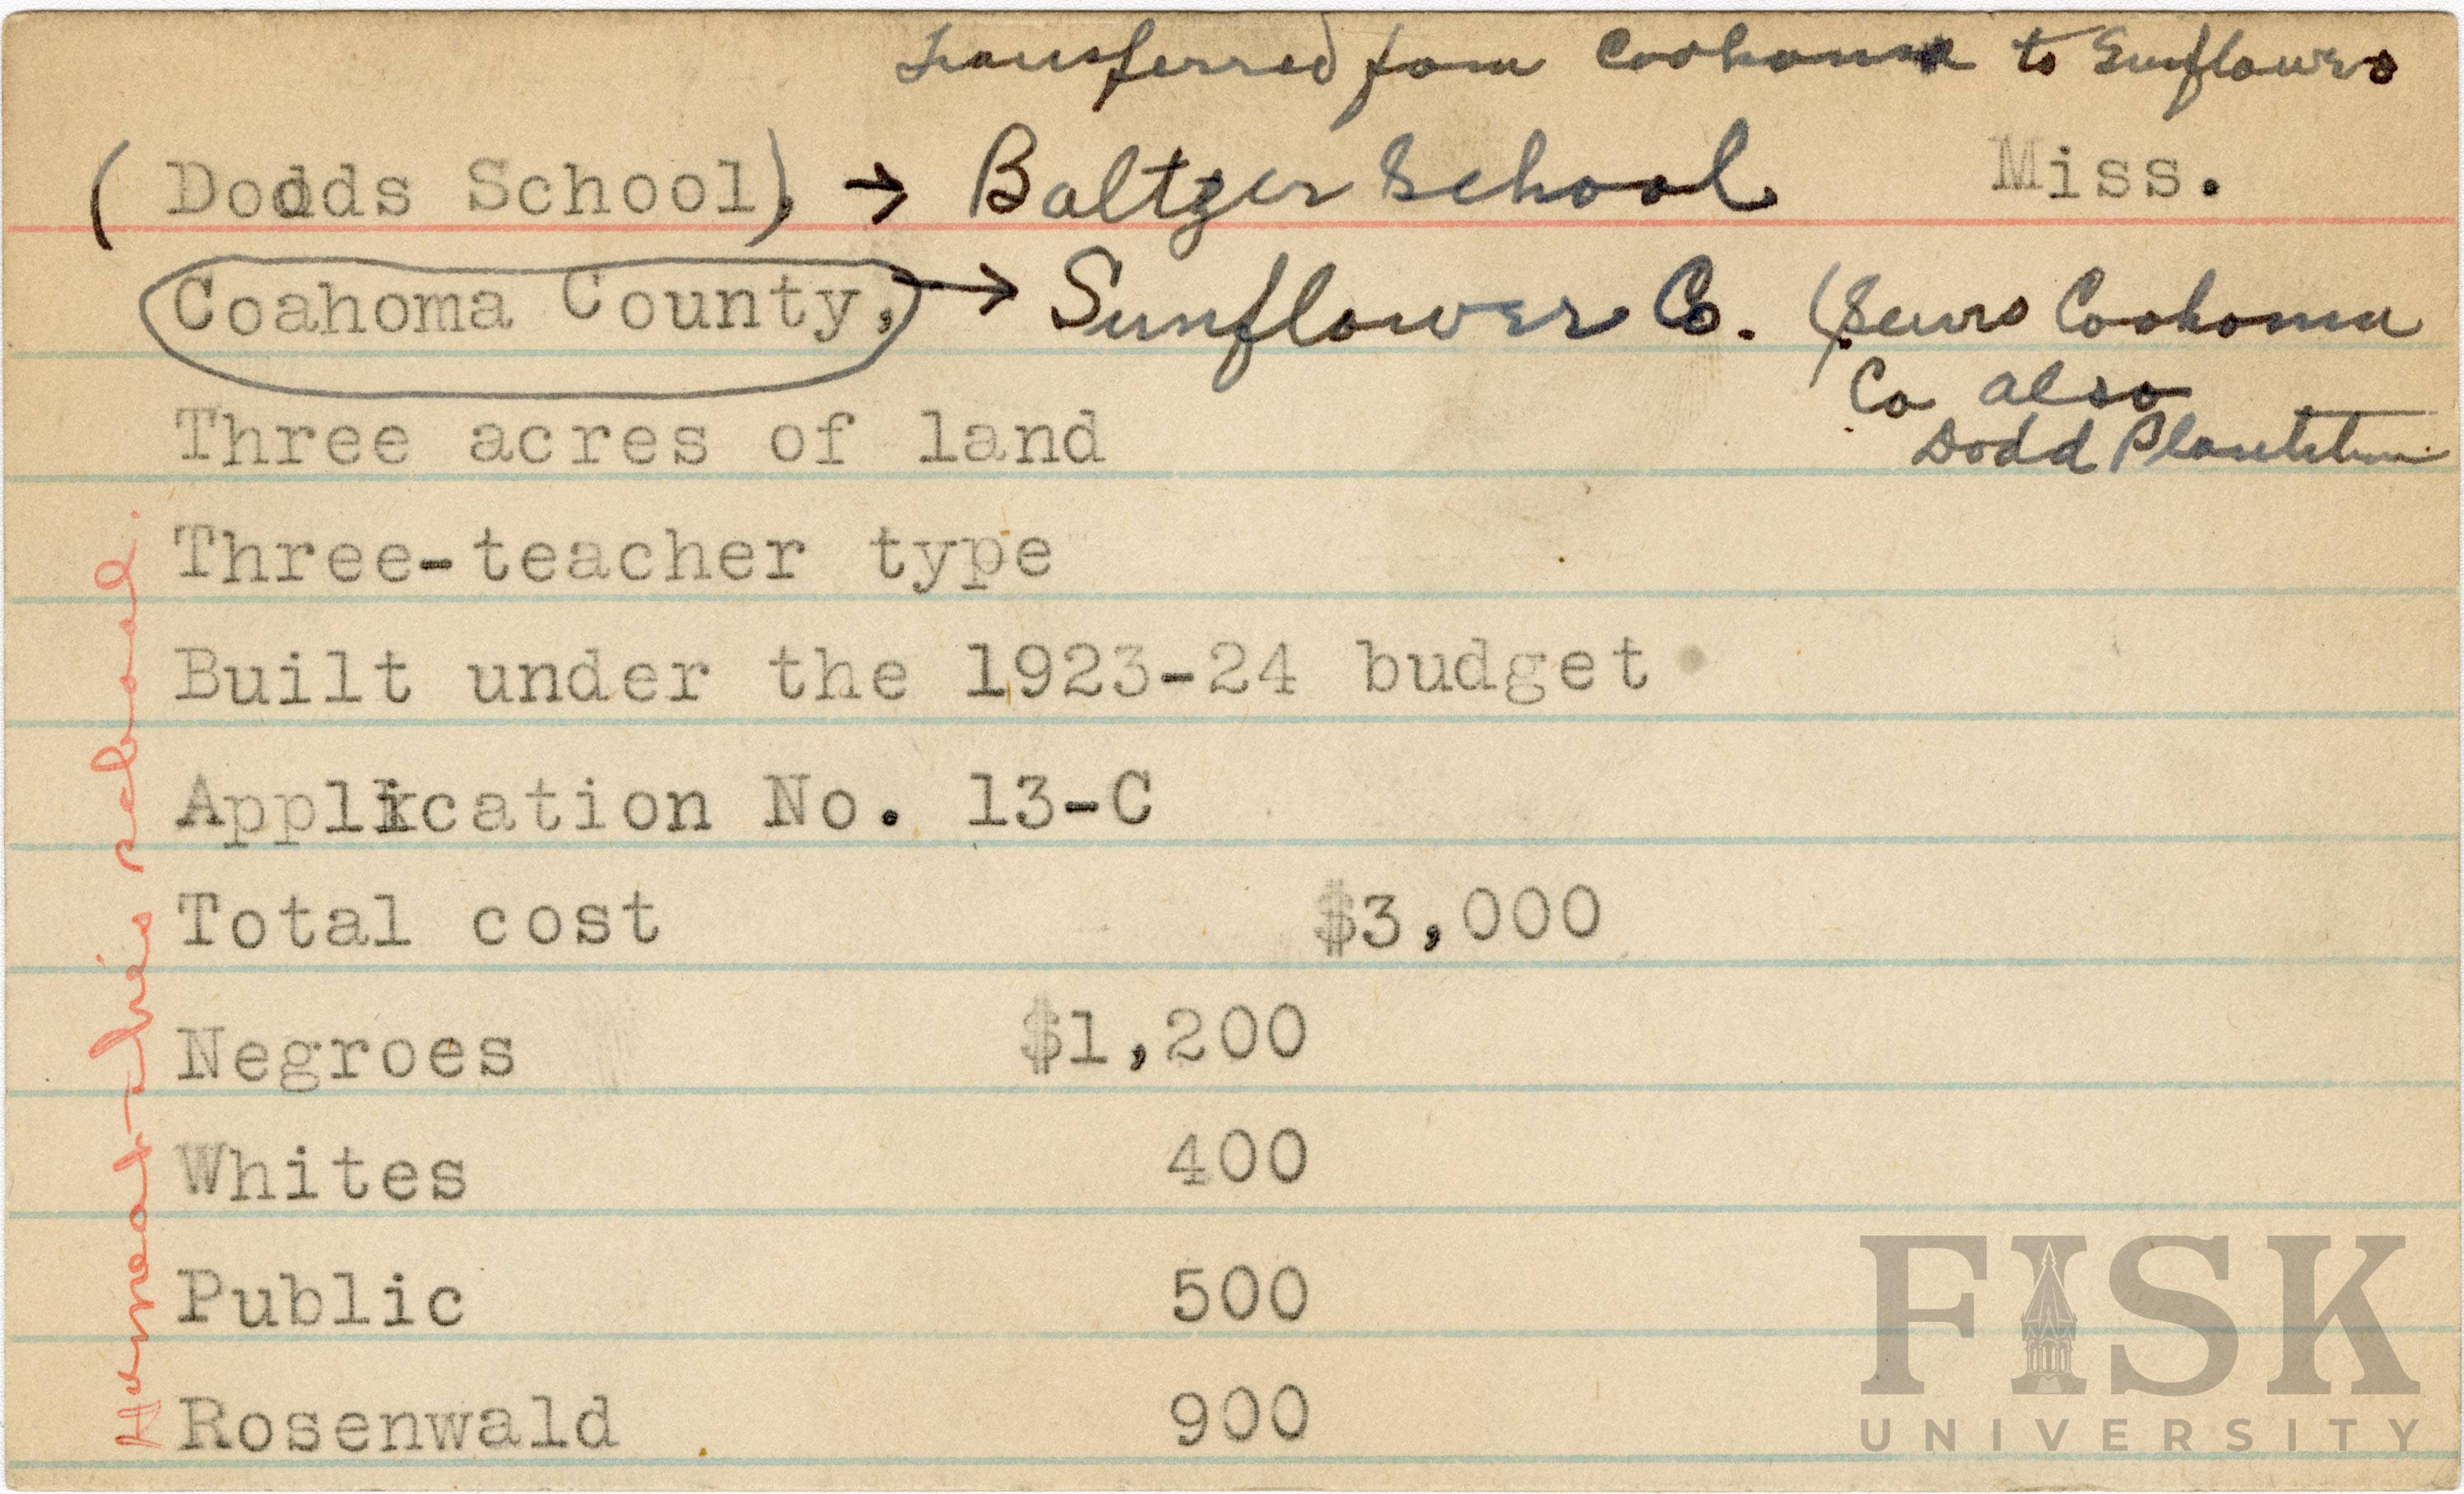 Transferred fom Coohoma to Sunflowers
(Dodds School) → Baltzer School Miss.
Coahoma County, → Sunflower Co. (Servs Coohoma
Co also
Dodd Plantation
Three acres of land
Three-teacher type
Built under the 1923-24 budget
Application No. 13-C
Total cost $3,000
Negroes $1,200
Whites 400
Public 500
Rosenwald 900
school
FISK
UNIVERSITY